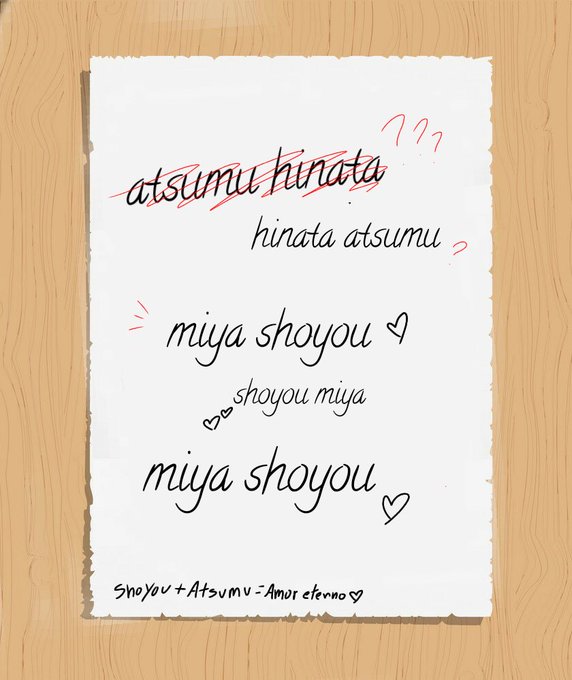 atsumu hinata ???
hinata atsumu ?
miya shoyou ♡
shoyou miya
miya shoyou ♡
Shoyou + Atsumu = Amor eterno ♡